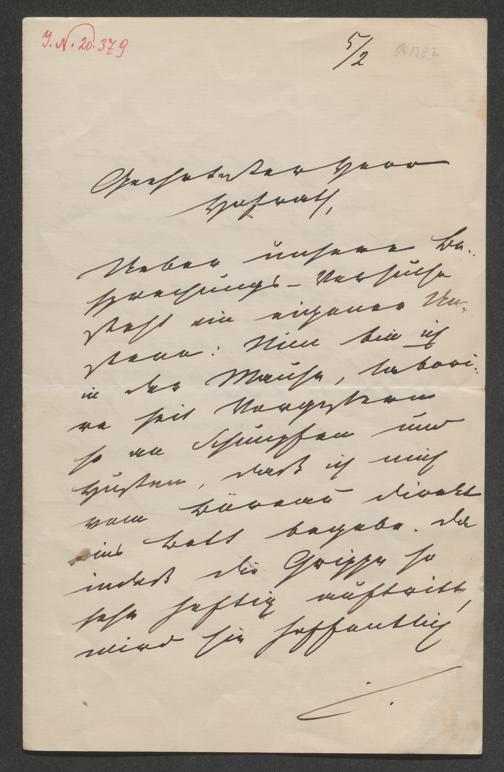 J. N. 20.379
5/2
Geehrtester Herr
Hofrath,
Ueber unsere Be-
sprechungs-Versuche
steht ein eigener Un-
stern: Nun bin ich
in der Mause, labori-
re seit Vorgestern
so an Schnupfen und
Husten, daß ich mich
vom Büreau direkt
ins Bett begebe. Da
indeß die Grippe so
sehr heftig auftritt,
wird sie hoffentlich